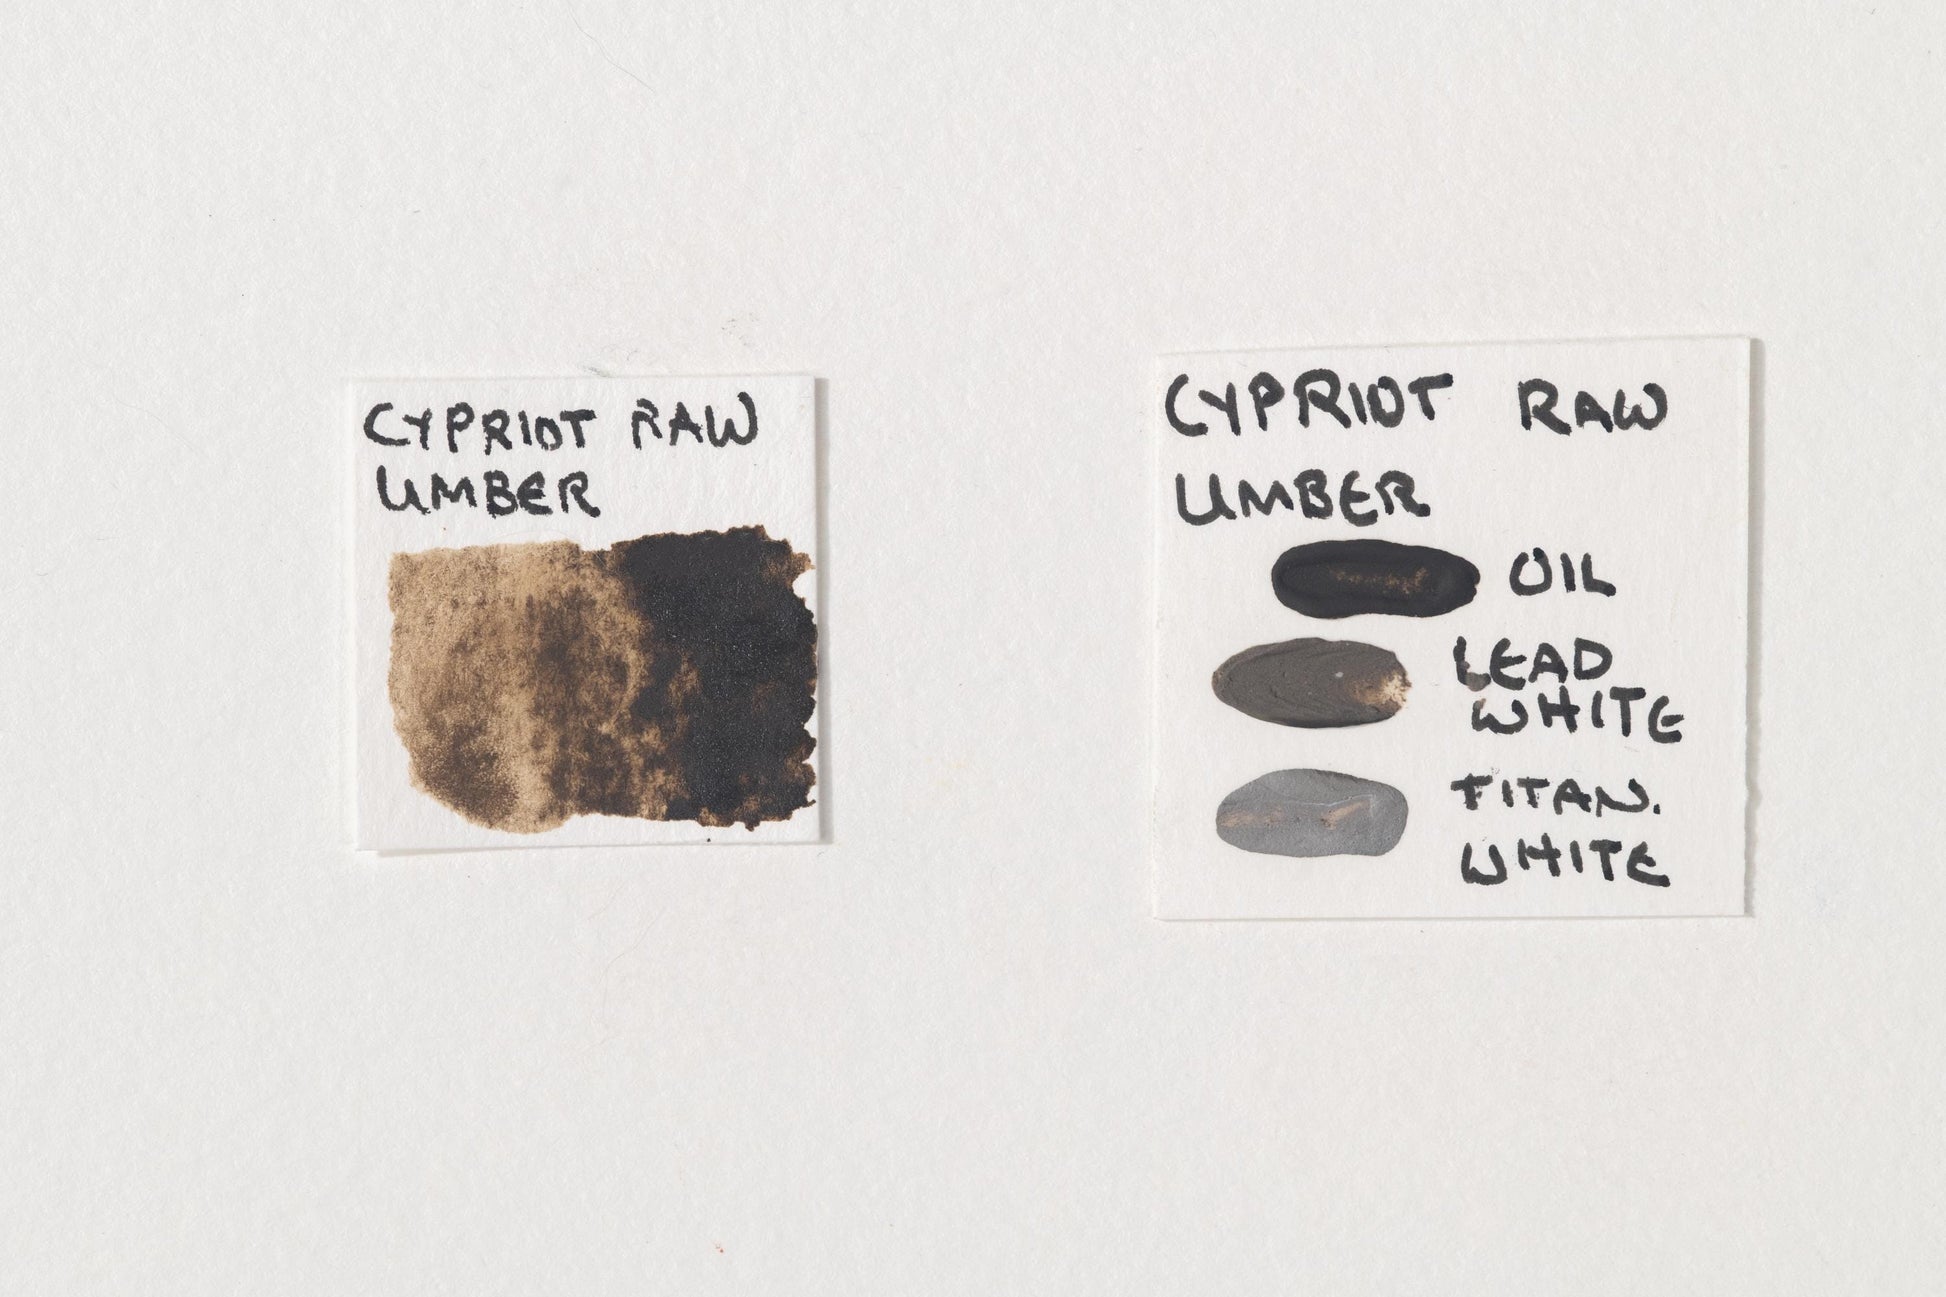 CYPRIOT RAW
UMBER
CYPRIOT RAW
UMBER
OIL
LEAD
WHITE
TITAN.
WHITE